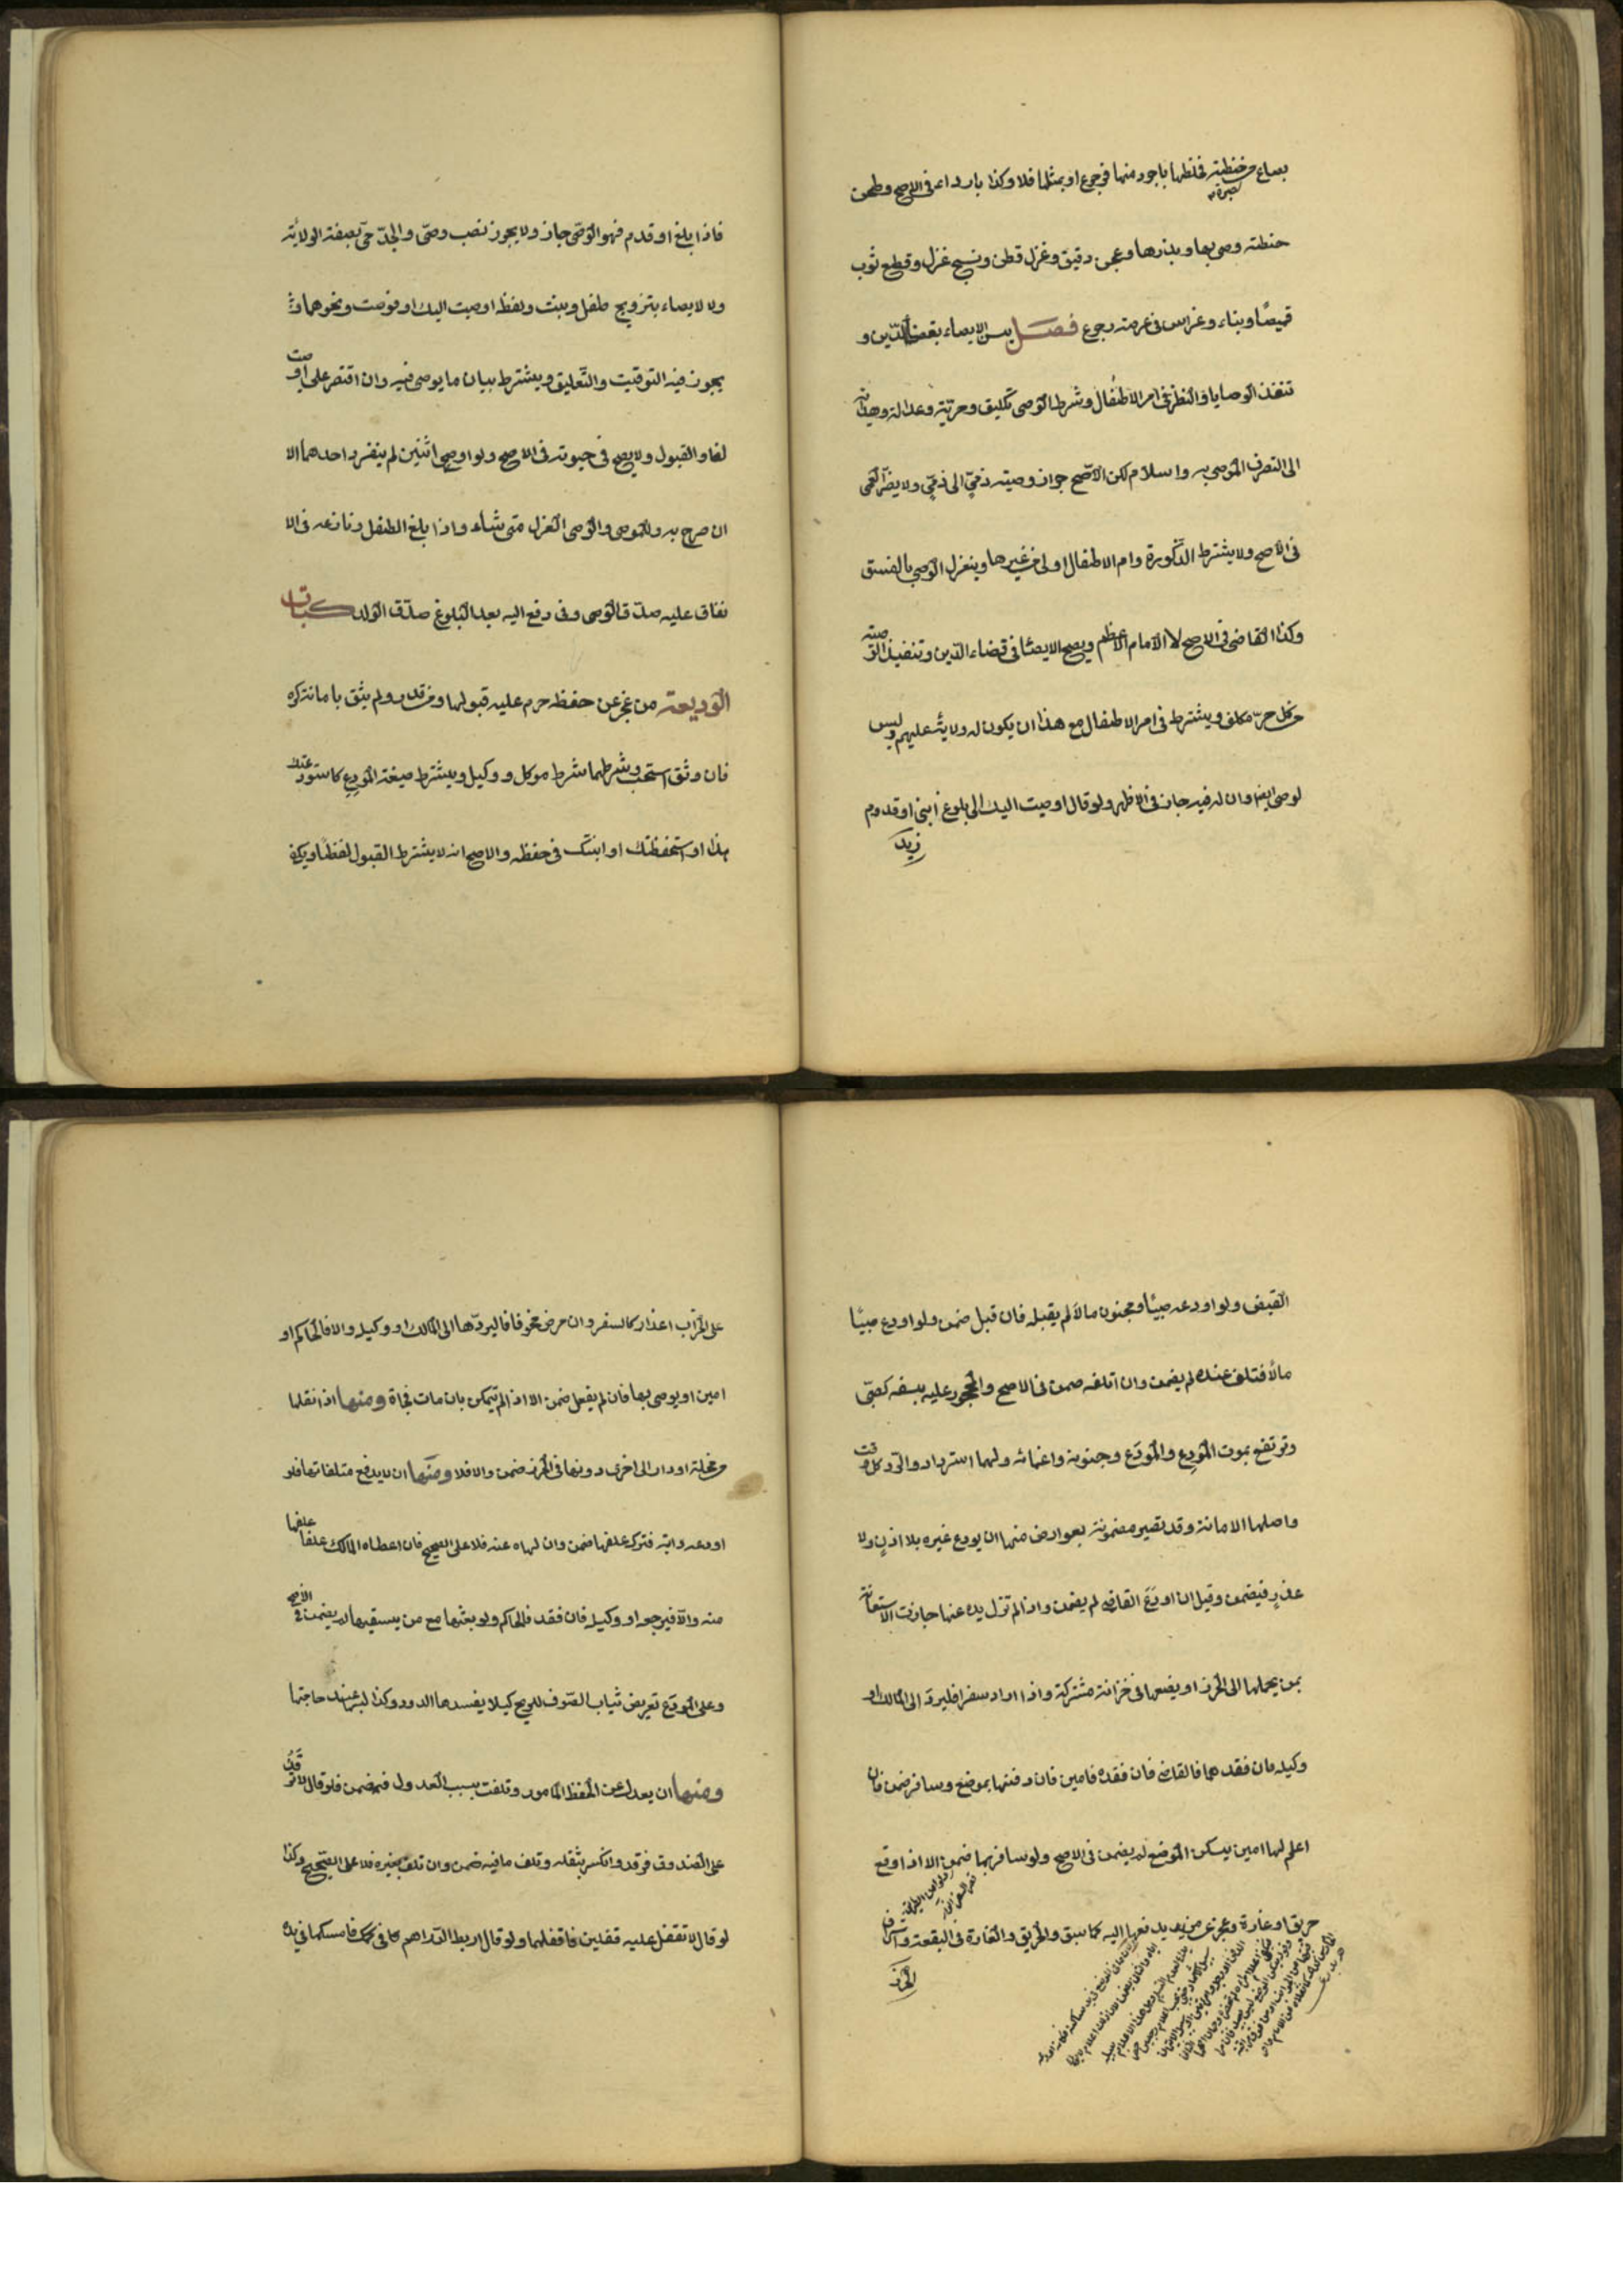 بصاع من حنطته فخلطها باجود منها فرجوع او بمثلها فلا وكذا باردا من فى الاصح وطحن
حنطته وصى بها وبذرها وعجن دقيق وغزل قطن ونسج غزل وقطع ثوب
قميصًا وبناء وغراس فى عرصته رجوع فصل يسن الايصاء بقضاء الدّين و
تنفذ الوصايا والنظر فى امر الاطفال وشرط الوصى تكليف وحريّة وعدالة وهداية
الى التصرف الموصى به واسلام لكن الاصّح جواز وصيته ذمّيّ الى ذمّيّ ولا يضرّ العمى
فى الاصح ولا يشترط الذّكورة وام الاطفال اولى من غيرها وينعزل الوصى بالفسق
وكذا القاضى فى الاصح لا الامام الاعظم ويصح الايصاء فى قضاء الدّين وتنفيذ الوصيّة
من كل حرّ مكلف ويشترط فى امر الاطفال مع هذا ان يكون له ولاية عليهم وليس
لوصى ايصاء فان له فيه جاز فى الاظهر ولو قال اوصيت اليك الى بلوغ ابنى او قدوم
زيد
فاذا بلغ او قدم فهو الوصّى جاز ولا يجوز نصب وصّى والجدّ حىّ بصفة الولاية
ولا لايصاء بتزويج طفل وبنت ولفظه اوصيت اليك او فوضت ونحوهما و
يجوز فيه التوقيت والتّعليق ويشترط بيان ما يوصى فيه وان اقتصر على اوصيت
لغا والقبول ولا يصح فى حيوته فى الاصح ولو اوصى اثنين لم ينفرد احدهما الا
ان صرح به وللموصى والوصى العزل متى شاء واذا بلغ الطفل ونازعه فى الا
نفاق عليه صدّق الوصى وفى دفع اليه بعد البلوغ صدّق الولد كتاب
الوديعة من عجز عن حفظه حرم عليه قبولها ومن قدر ولم يثق بامانته كره
فان وثق استحب وشرطهما شرط موكل ووكيل ويشترط صيغة المودِع كاستودعتك
هذا او استحفظتك او انبتك فى حفظه والاصح انه لا يشترط القبول لفظًا ويكفى
القبض ولو اودعه صبىّ او مجنون مالاً لم يقبله فان قبل ضمن ولو اودع صبيًا
مالاً فتلف عنده لم يضمن وان اتلفه ضمن فى الاصح والمحجور عليه بسفه كصبّى
وترتفع بموت المودِع والمودَع وجنونه واغمائه ولهما استرداد والردّ كل وقت
واصلها الامانة وقد تصير مضمونة بعوارض منها ان يودع غيره بلا اذنٍ ولا
عذرٍ فيضمن وقيل ان اودَعَ القاضى لم يضمن واذا لم تزل يده عنها جازت الاستعانة
بمن يحملها الى الحرز او يضعها فى خزانة مشتركة واذا اراد سفرا فليردّ الى المالك او
وكيله فان فقدهما فالقاضى فان فقده فامين فان دفنها بموضع وسافر ضمن فان
اعلم لها امين يسكن الموضع لم يضمن فى الاصح ولو سافر بها ضمن الا اذا وقع
حريق او غارة وعجز عمن يدفعها اليه كما سبق والحريق والغارة فى البقعة واشراف
الحرز
على الخراب اعذار كالسفر وان مرض مخوفا فاليردّها الى المالك او وكيله والا فالحاكم او
امين او يوصى بها فان لم يفعل ضمن الا اذا لم يتمكن بان مات فجاة ومنها اذا نقلها
من محلة او دار الى اخرى دونها فى الحرز ضمن والا فلا ومنها ان لا يدفع متلفاتها فلو
اودعه دابّة فترك علفها ضمن وان نهاه عنه فلا على الصحيح فان اعطاه المالك علفا علفها
منه والاّ فيراجعه او وكيله فان فقد فالحاكم ولو بعثها مع من يسقيها لم يضمن فى الاصح
وعلى المودَع تعريض ثياب الصّوف للريح كيلا يفسدها الدود وكذا لبسها عند حاجتها
ومنها ان يعدل عن الحفظ المامور وتلفت بسبب العدول فيضمن فلو قال لا ترقد
على الصندوق فرقد وانكسر بثقله وتلف ما فيه ضمن وان تلف بغيره فلا على الصحيح وكذا
لو قال لا تقفل عليه قفلين فاقفلهما ولو قال اربط الدّراهم فى كمك فامسكها فى يده